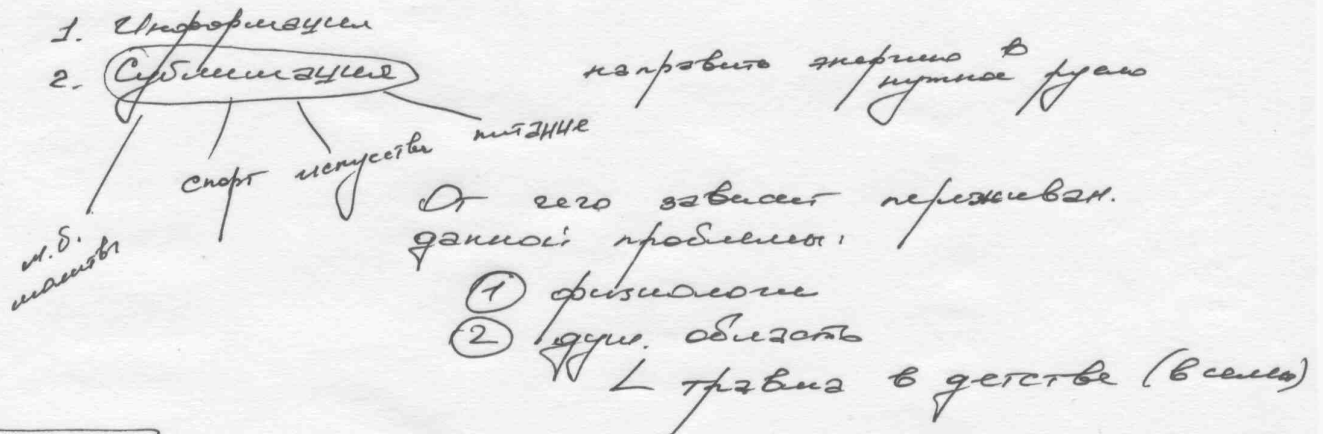 1. Информация
2. Сублимация
направить энергию в нужное русло
м.б. молитвы
спорт
искусства
питание
От чего зависит переживан.
данной проблемы:
1 физиологи
2 душ. область
травма в детстве (в семье)